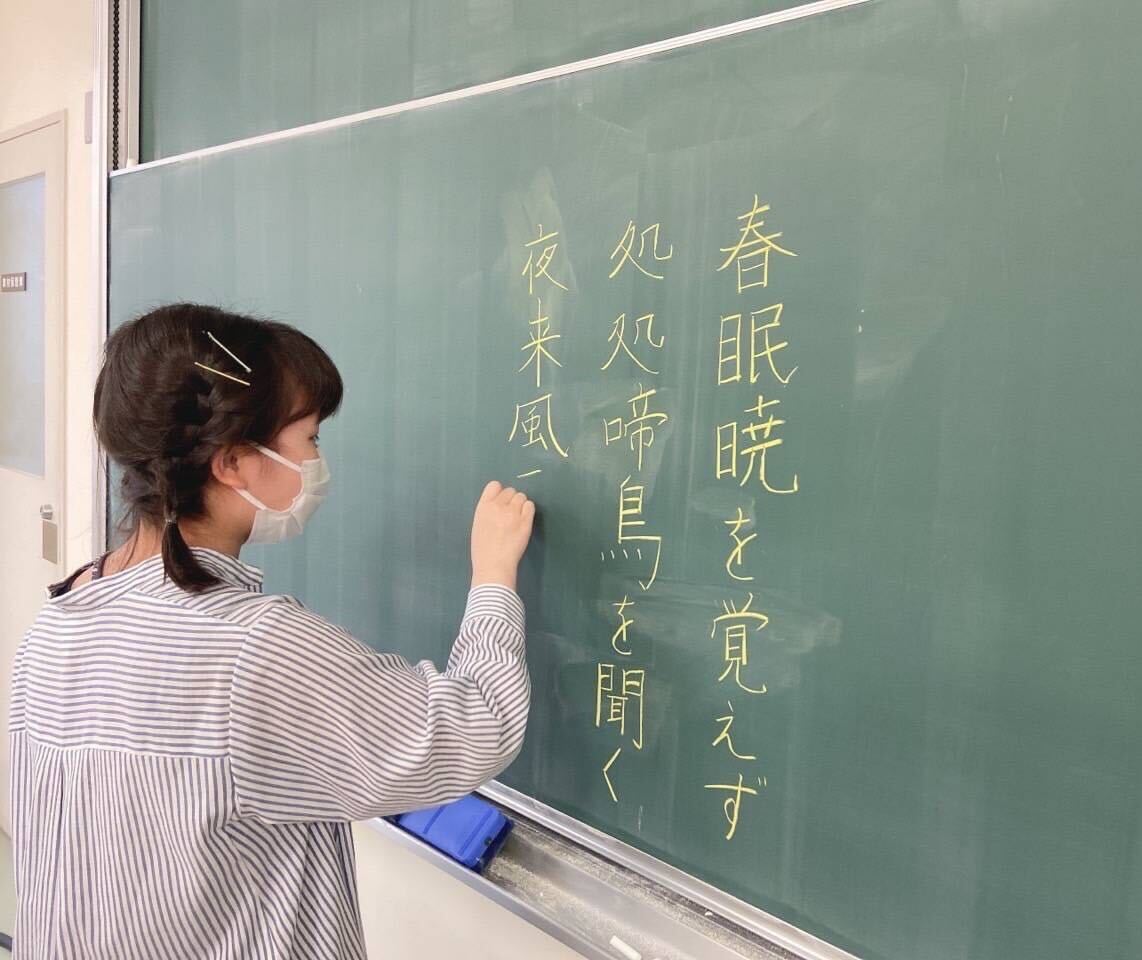 春眠暁を覚えず
処処啼鳥を聞く
夜来風